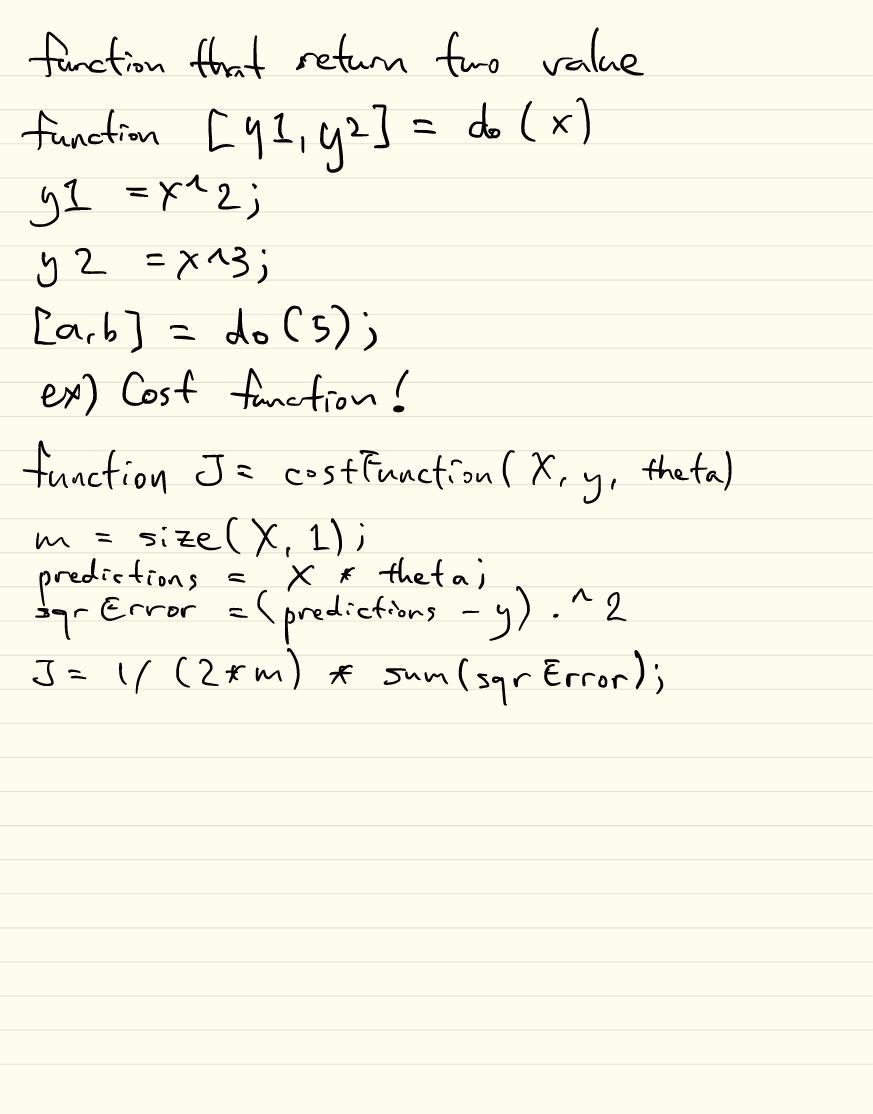 function that return two value
function [y1, y2] = do (x)
y1 = x^2;
y2 = x^3;
[a,b] = do(5);
ex) Cost function!
function J = costFunction(X, y, theta)
m = size(X, 1);
predictions = X * theta;
sqrError = (predictions - y) .^ 2
J = 1/ (2*m) * sum(sqrError);